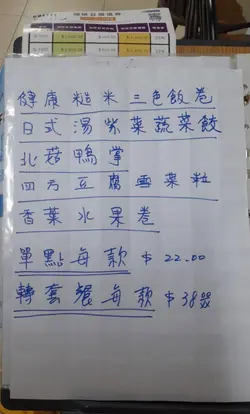 健康糙米三色飯卷
日式湯紫菜蔬菜餃
北菇鴨掌
四方豆腐雪菜粒
香葉水果卷
單點每款 $22.00
轉套餐每款 $38